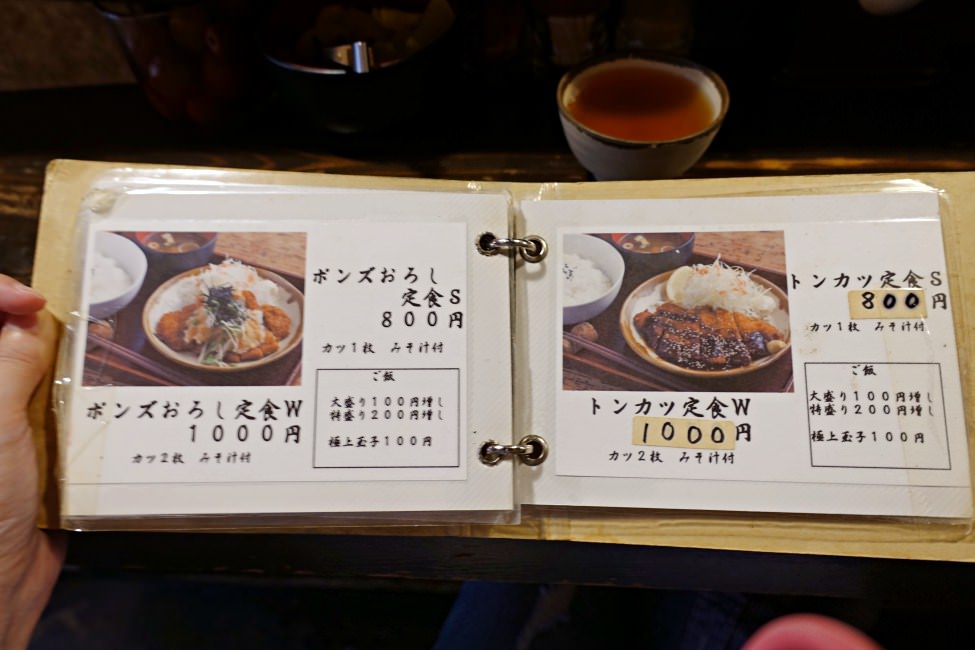 ポンズおろし
定食S
８００円
カツ１枚　みそ汁付
ポンズおろし定食W
１０００円
カツ２枚　みそ汁付
ご飯
大盛り１００円増し
特盛り２００円増し
極上玉子１００円
トンカツ定食S
800円
カツ１枚　みそ汁付
トンカツ定食W
1000円
カツ２枚　みそ汁付
ご飯
大盛り１００円増し
特盛り２００円増し
極上玉子１００円